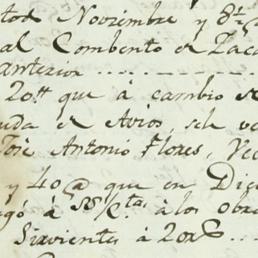 Noviembre y
al Combento de Zaca
anterior
20 que á cambio de
uda de Avios, sele
José Antonio Flores, Vec
y 40 que en Dic
gó á Cta á los Obra
Sirvientes á 20